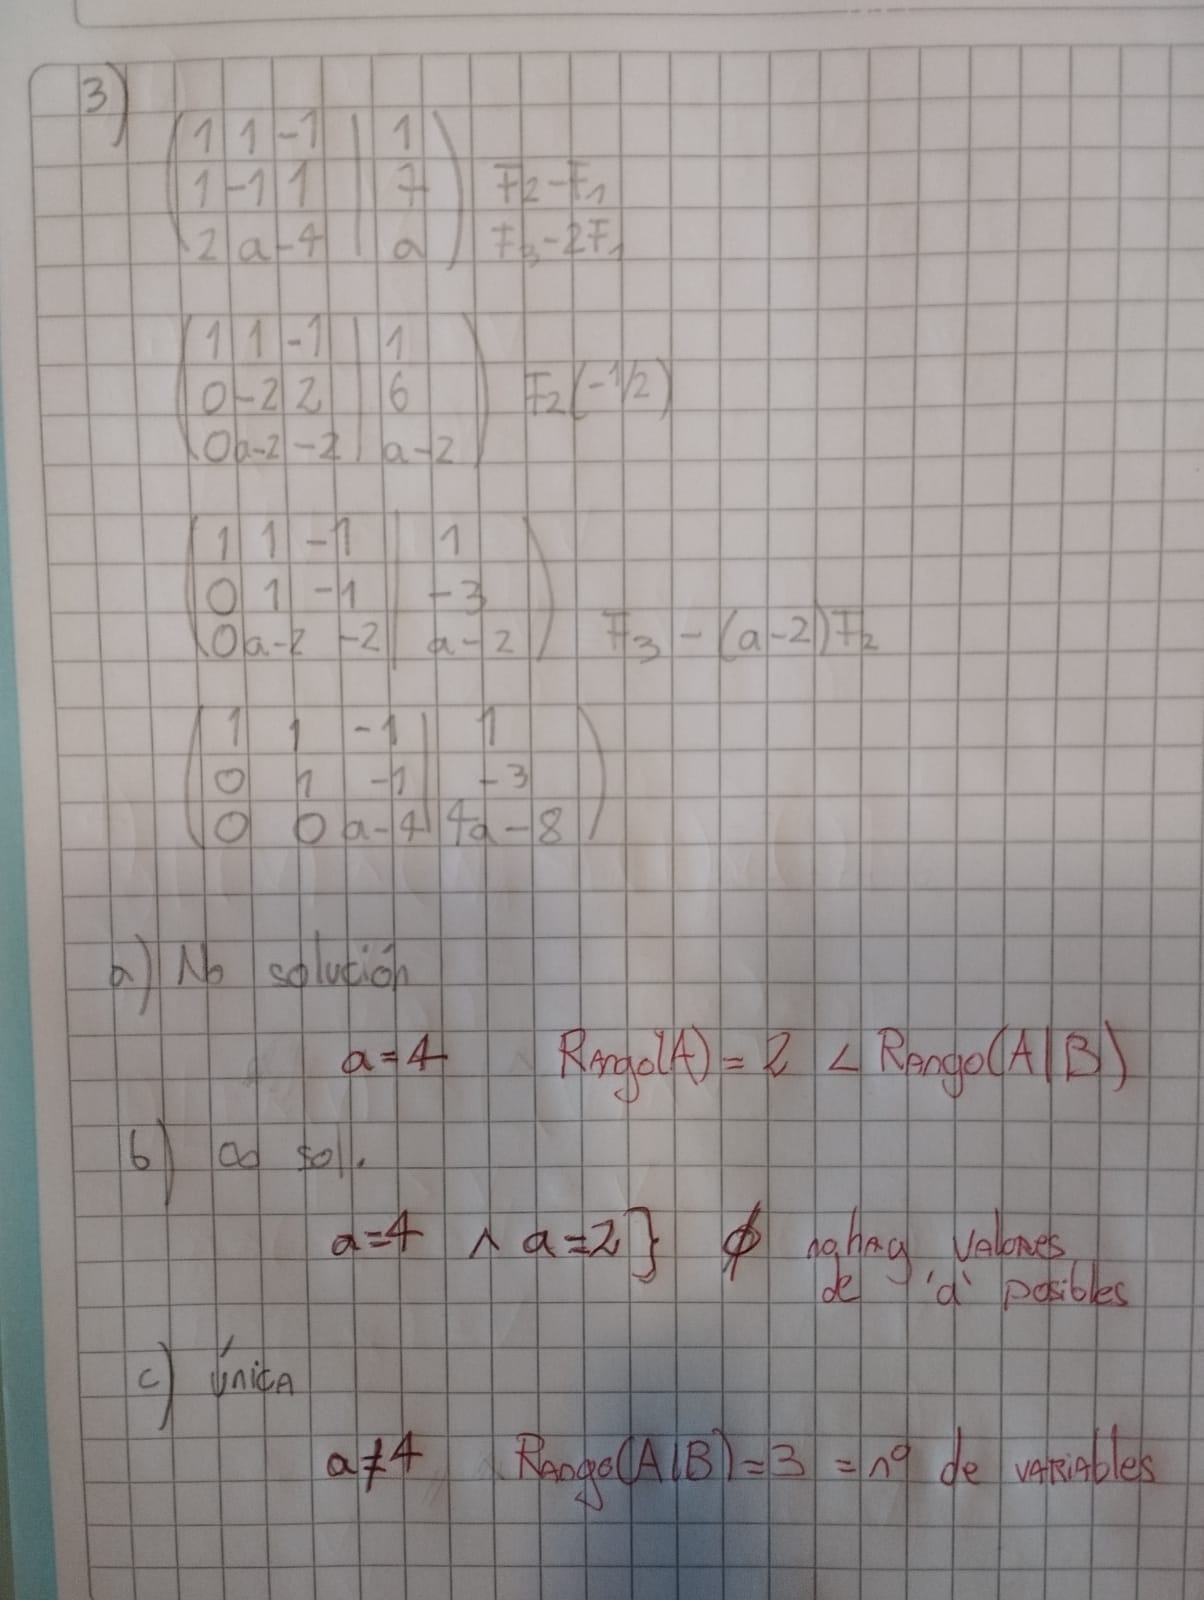 3)
1 1 -1 | 1
1 -1 1 | 7 F2-F1
2 a -4 | a F3-2F1
1 1 -1 | 1
0 -2 2 | 6 F2(-1/2)
0 a-2 -2 | a-2
1 1 -1 | 1
0 1 -1 | -3
0 a-2 -2 | a-2 F3 - (a-2)F2
1 1 -1 | 1
0 1 -1 | -3
0 0 a-4 | 4a-8
a) No solución
a=4 Rango(A) = 2 < Rango(A|B)
b) ∞ sol.
a=4 ∧ a=2} ∅ no hay valores
de 'a' posibles
c) única
a≠4 Rango(A|B)=3 = nº de variables